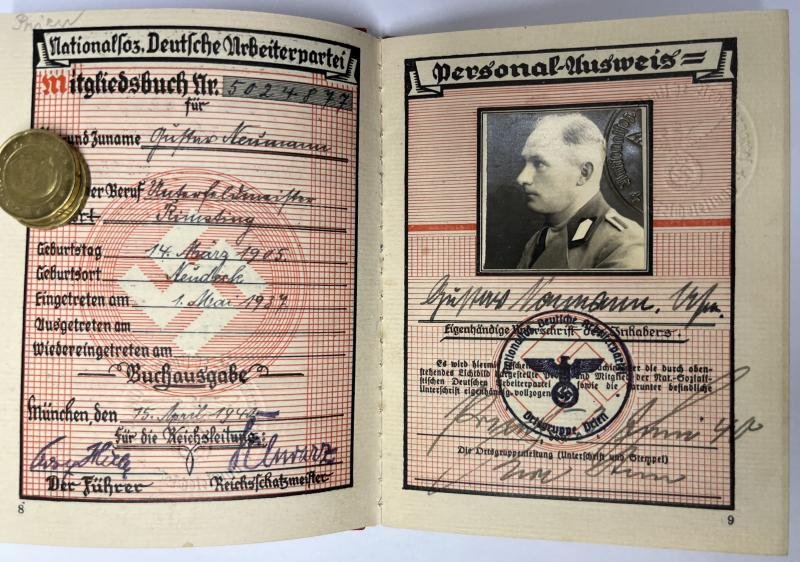 Prien
Nationalsoz. Deutsche Arbeiterpartei
Mitgliedsbuch Nr. 5024877
für
und Zuname Gustav Neumann
Beruf Unterfeldmeister
Rimsting
Geburtstag 14. März 1905
Geburtsort Neudeck
Eingetreten am 1. Mai 1937
Ausgetreten am
Wiedereingetreten am
Buchausgabe
München, den 15. April 1940
Für die Reichsleitung:
Der Führer Reichsschatzmeister
8
Personal-Ausweis
Gustav Neumann.
Eigenhändige Unterschrift des Inhabers.
Es wird hiermit die durch oben-
stehendes Lichtbild dargestellte und Mitglied der Nat.-Soziali-
stischen Deutschen Arbeiterpartei sowie die darunter befindliche
Unterschrift eigenhändig vollzogen
Nationalsozialistische Deutsche Arbeiterpartei
Ortsgruppe Prien
Die Ortsgruppenleitung (Unterschrift und Stempel)
9